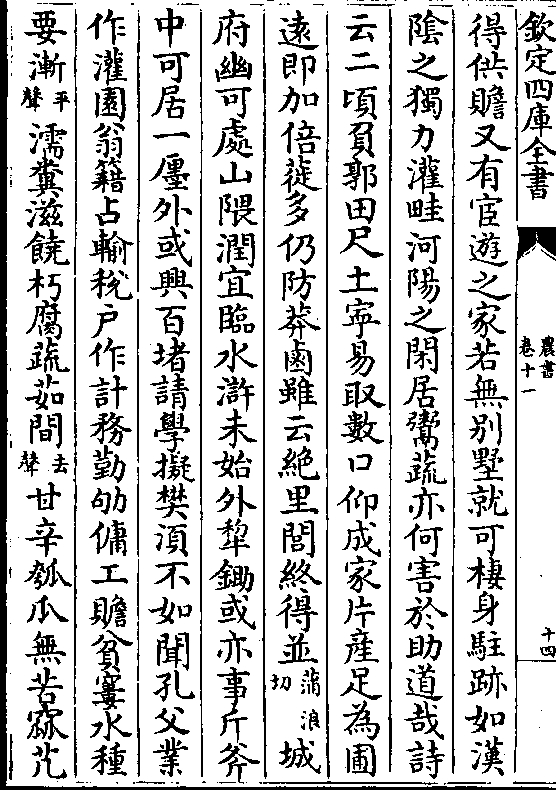 欽定四庫全書
農書
卷十一
十四
得供贍又有宦遊之家若無別墅就可棲身駐跡如漢
陰之獨力灌畦河陽之閑居鬻蔬亦何害於助道哉詩
云二頃負郭田尺土寜易取數口仰成家片産足為圃
逺即加倍蓰多仍防莽鹵雖云絶里閭終得並蒲浪切城
府幽可處山隈潤宜臨水滸未始外犂鋤或亦事斤斧
中可居一㕓外或興百堵請學擬樊湏不如聞孔父業
作灌園翁籍占輸税户作計務勤劬傭工贍貧窶水種
要漸平聲濡糞滋饒朽腐蔬茹間去聲甘辛瓠瓜無苦窳芃